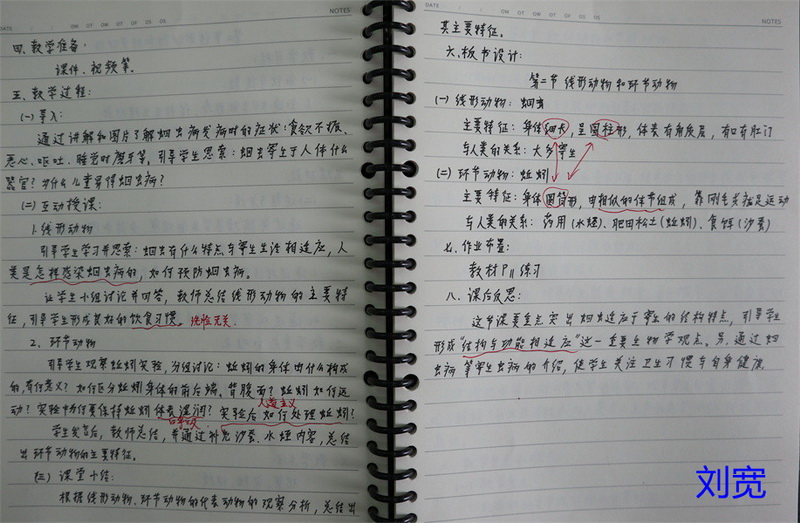 DATE
NOTES
四、教学准备：
课件、视频等.
五、教学过程：
(一)导入：
通过讲解和图片了解蛔虫病发病时的症状：食欲不振、
恶心、呕吐、睡觉时磨牙等，引导学生思索：蛔虫寄生于人体什么
器官？为什么儿童易得蛔虫病？
(二)互动授课：
1.线形动物
引导学生学习并思索：蛔虫有什么特点与寄生生活相适应，人
类是怎样感染蛔虫病的，如何预防蛔虫病。
让学生小组讨论并回答，教师总结线形动物的主要特
征，引导学生形成良好的饮食习惯。
2.环节动物
引导学生观察蚯蚓实验，分组讨论：蚯蚓的身体由什么构成
的，有何意义？如何区分蚯蚓身体的前后端、背腹面？蚯蚓如何运
动？实验中为何要保持蚯蚓体表湿润？实验后如何处理蚯蚓？
学生发言后，教师总结，并通过补充沙蚕、水蛭内容，总结
出环节动物的主要特征。
(三)课堂小结：
根据线形动物、环节动物的代表动物的观察分析，总结出
DATE
NOTES
其主要特征。
六、板书设计：
第二节 线形动物和环节动物
(一)线形动物：蛔虫
主要特征：身体细长，呈圆柱形，体表有角质层，有口有肛门
与人类的关系：大多寄生
(二)环节动物：蚯蚓
主要特征：身体圆筒形，由相似的体节组成，靠刚毛或疣足运动
与人类的关系：药用(水蛭)、肥田松土(蚯蚓)、食饵(沙蚕)
七、作业布置：
教材P11练习
八、课后反思：
这节课要重点突出蛔虫适应于寄生的结构特点，引导学生
形成“结构与功能相适应”这一重要生物学观点。另，通过蛔
虫病等寄生虫病的介绍，使学生关注卫生习惯与自身健康。
刘宽